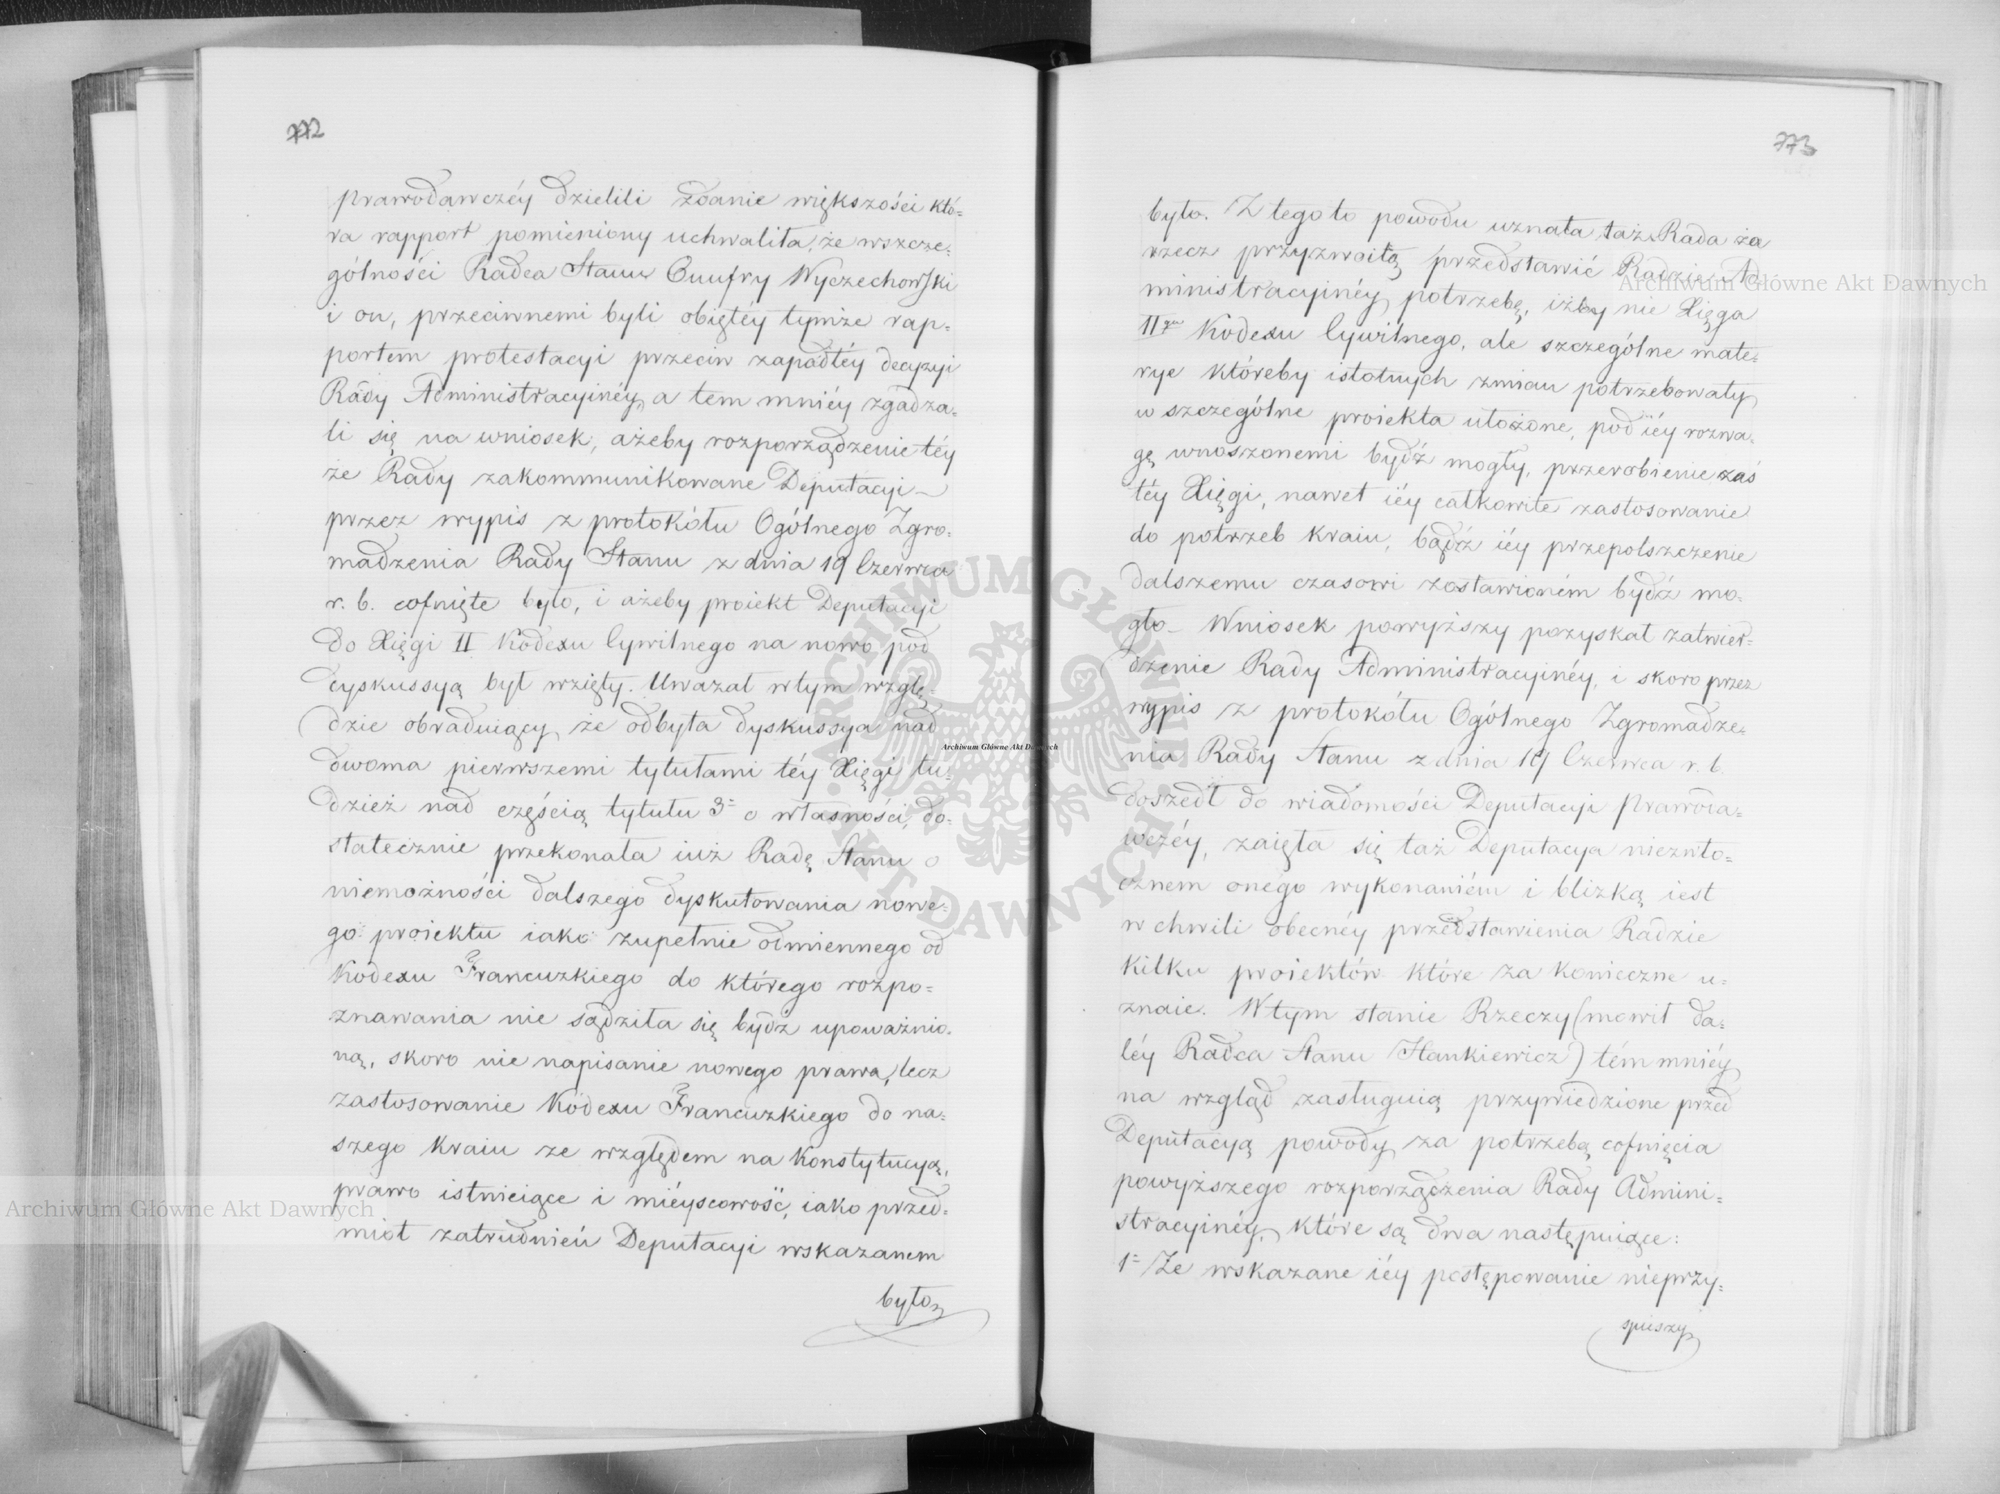 772
prawodawczéy dzielili zdanie większości któ=
ra rapport pomieniony uchwaliła, że wszcze=
gólności Radca Stanu Onufry Wyczechowski
i on, przeciwnemi byli obiętéy tymże rap=
portem protestacyi przeciw zapadłéy decyzyi
Rady Administracyinéy, a tem mniéy zgadza=
li się na wniosek, ażeby rozporządzenie téy
że Rady zakommunikowane Deputacyi
przez wypis z protokółu Ogólnego Zgro=
madzenia Rady Stanu z dnia 19 Czerwca
r. b. cofnięte było, i ażeby proiekt Deputacyi
do Xięgi II Kodexu Cywilnego na nowo pod
dyskussyą był wzięty. Uważał w tym wzglę=
dzie obraduiący, że odbyta dyskussya nad
dwoma pierwszemi tytułami téy Xięgi tu=
dzież nad częścią tytułu 3= o własności, do=
statecznie przekonała iuż Radę Stanu o
niemożności dalszego dyskutowania nowe=
go proiektu iako zupełnie odmiennego od
Kodexu Francuzkiego do którego rozpo=
znawania nie sądziła się bydź upoważnio=
ną, skoro nie napisanie nowego prawa, lecz
zastosowanie Kodexu Francuzkiego do na=
szego kraiu ze względem na Konstytucyą,
prawo istnieiące i mieyscowość, iako przed=
miot zatrudnień Deputacyi wskazanem
było
773
było. Z tego to powodu uznała taż Rada za
rzecz przyzwoitą przedstawić Radzie Ad
ministracyinéy potrzebę, iżby nie Xięga
IIga Kodexu Cywilnego, ale szczególne mate=
rye któreby istotnych zmian potrzebowały
w szczególne proiekta ułożone, pod iéy rozwa=
gę wnoszonemi bydź mogły, przerobienie zaś
téy Xięgi, nawet iéy całkowite zastosowanie
do potrzeb kraiu, bądź iéy przepolszczenie
dalszemu czasowi zostawioném bydź mo=
gło – Wniosek powyższy pozyskał zatwier=
dzenie Rady Administracyinéy, i skoro przez
wypis z protokółu Ogólnego Zgromadze=
nia Rady Stanu z dnia 19 Czerwca r. b.
doszedł do wiadomości Deputacyi Prawoda=
wczéy, zaięła się taż Deputacya niezwło=
cznem onego wykonaniém i blizką iest
w chwili obecnéy przedstawienia Radzie
kilku proiektów które za konieczne u=
znaie. W tym stanie Rzeczy (mówił da=
léy Radca Stanu Hankiewicz) tém mniéy
na wzgląd zasługuią przywiedzione przed
Deputacyą powody za potrzebą cofnięcia
powyższego rozporządzenia Rady Admini=
stracyinéy, które są dwa następuiące:
1= Że wskazane iéy postępowanie nieprzy=
spieszy
Archiwum Główne Akt Dawnych
Archiwum Główne Akt Dawnych
Archiwum Główne Akt Dawnych
ARCHIWUM GŁÓWNE AKT DAWNYCH · W ·